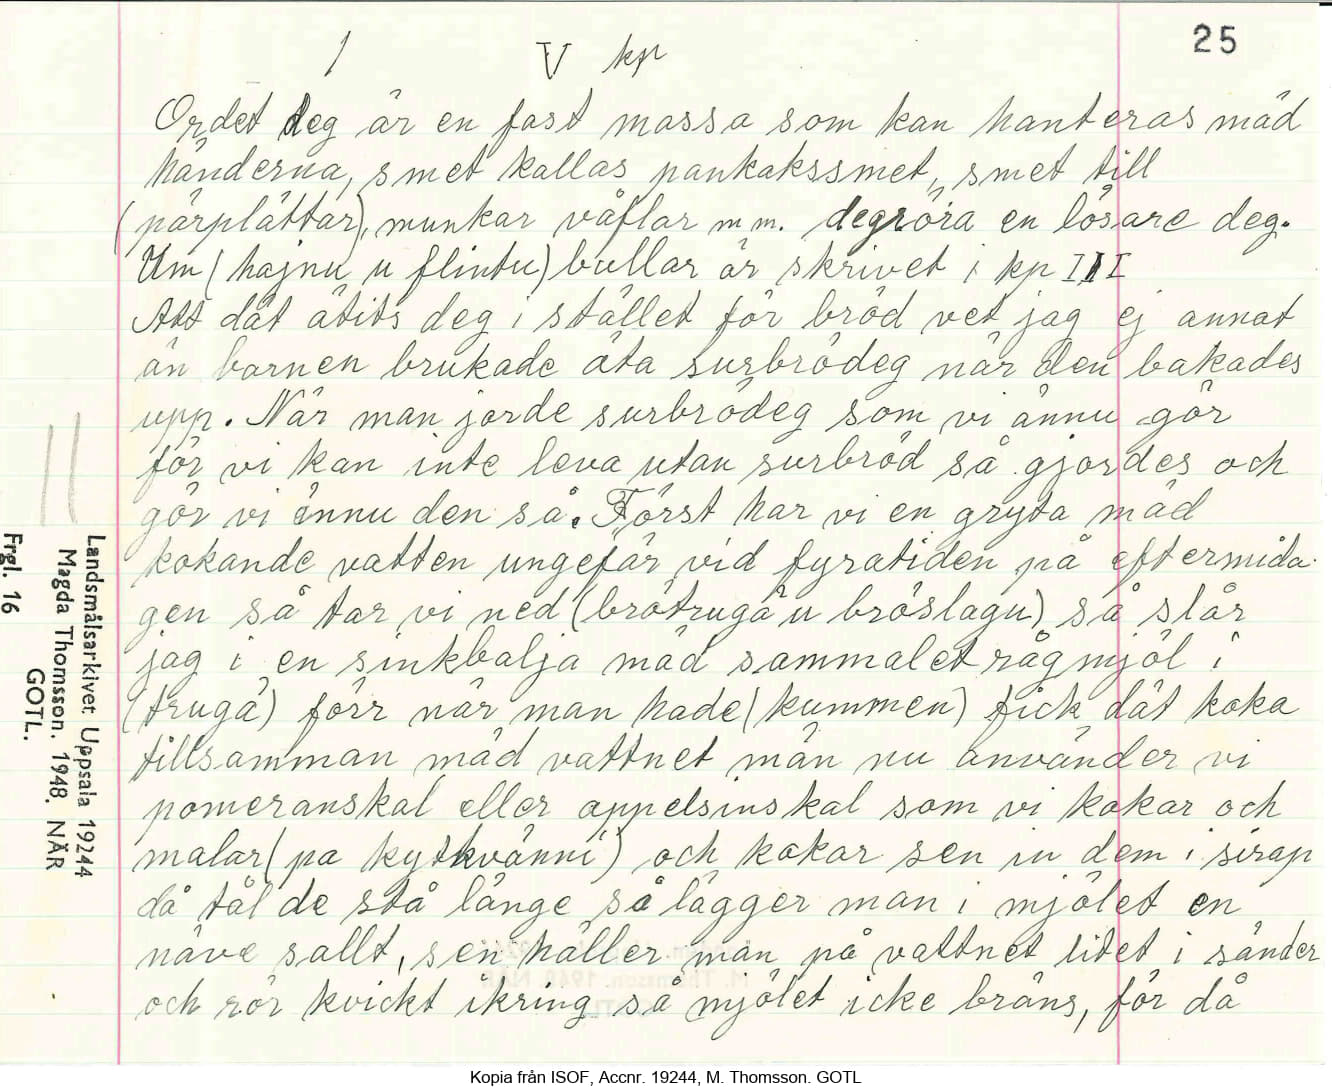 25
1 V kp
Ordet deg är en fast massa som kan hanteras mäd
händerna, smet kallas pankakssmet, smet till
(pärplättar), munkar våflar m m. degröra en lösare deg.
Um (hajnu u flintu) bullar är skrivet i kp III
Att dät ätits deg i stället för bröd vet jag ej annat
än barnen brukade äta surbrödeg när den bakades
upp. När man jorde surbrödeg som vi ännu gör
för vi kan inte leva utan surbröd så gjordes och
gör vi ännu den så. Först har vi en gryta mäd
kokande vatten ungefär vid fyratiden på eftermida-
gen så tar vi ned (brötrugå u bröslagu) så slår
jag i en sinkbalja mäd sammalet rågmjöl i
(trugå) förr när man hade (kummen) fick dät koka
tillsamman mäd vattnet män nu använder vi
pomeranskal eller appelsinskal som vi kokar och
malar (pa kytkvänni) och kokar sen in dem i sirap
då tål de stå länge så lägger man i mjölet en
näve sallt, sen häller man på vattnet litet i sänder
och rör kvickt ikring så mjölet icke bräns, för då
Landsmålsarkivet Uppsala 19244
Magda Thomsson. 1948. NÄR
GOTL.
Frgl. 16
Kopia från ISOF, Accnr. 19244, M. Thomsson. GOTL